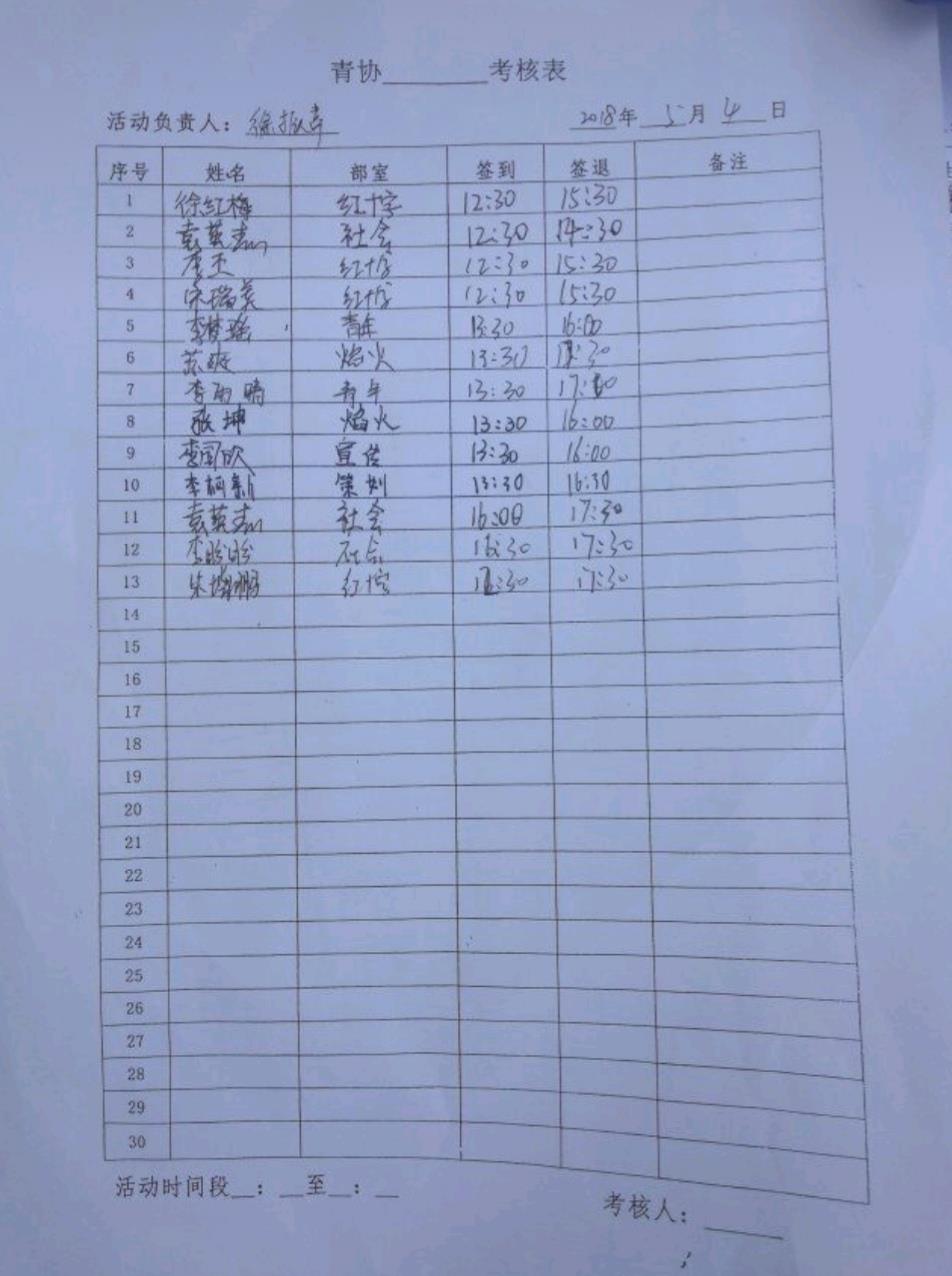 青协________考核表
活动负责人：徐振 2018年 5月 4日
序号 姓名 部室 签到 签退 备注
1 徐红梅 红十字 12:30 15:30
2 袁英杰 社会 12:30 14:30
3 红十字 12:30 15:30
4 宋瑞美 红十字 12:30 15:30
5 李梦瑶 青年 13:30 16:00
6 苏爽 焰火 13:30
7 李雨晴 青年 13:30
8 张坤 焰火 13:30 16:00
9 李国欣 宣传 13:30 16:00
10 李柯新 策划 13:30 16:30
11 袁英杰 社会 16:00 17:30
12 李盼盼 社会 16:30 17:30
13 红十字 17:30
14
15
16
17
18
19
20
21
22
23
24
25
26
27
28
29
30
活动时间段__：__至__：__
考核人：_____